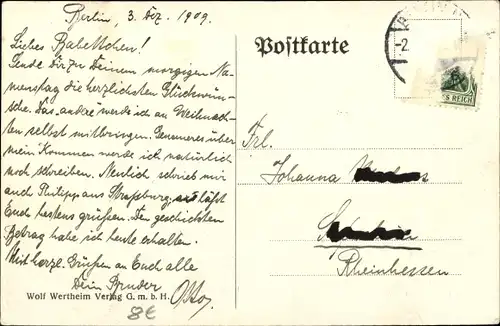 Berlin, 3. Dez. 1909.
Liebes Babettchen!
Sende Dir zu Deinem morgigen Na-
menstag die herzlichsten Glückwün-
sche. Das andre werde ich an Weihnach-
ten selbst mitbringen. Genaueres über
mein Kommen werde ich natürlich
noch schreiben. Neulich schrieb mir
auch Philipp aus Straßburg, läßt
Euch bestens grüßen. Den geschickten
Betrag habe ich heute erhalten.
Mit herzl. Grüßen an Euch alle
Dein Bruder
Otto.
Wolf Wertheim Verlag G. m. b. H.
8€
Postkarte
S REICH
Frl.
Johanna
Rheinhessen